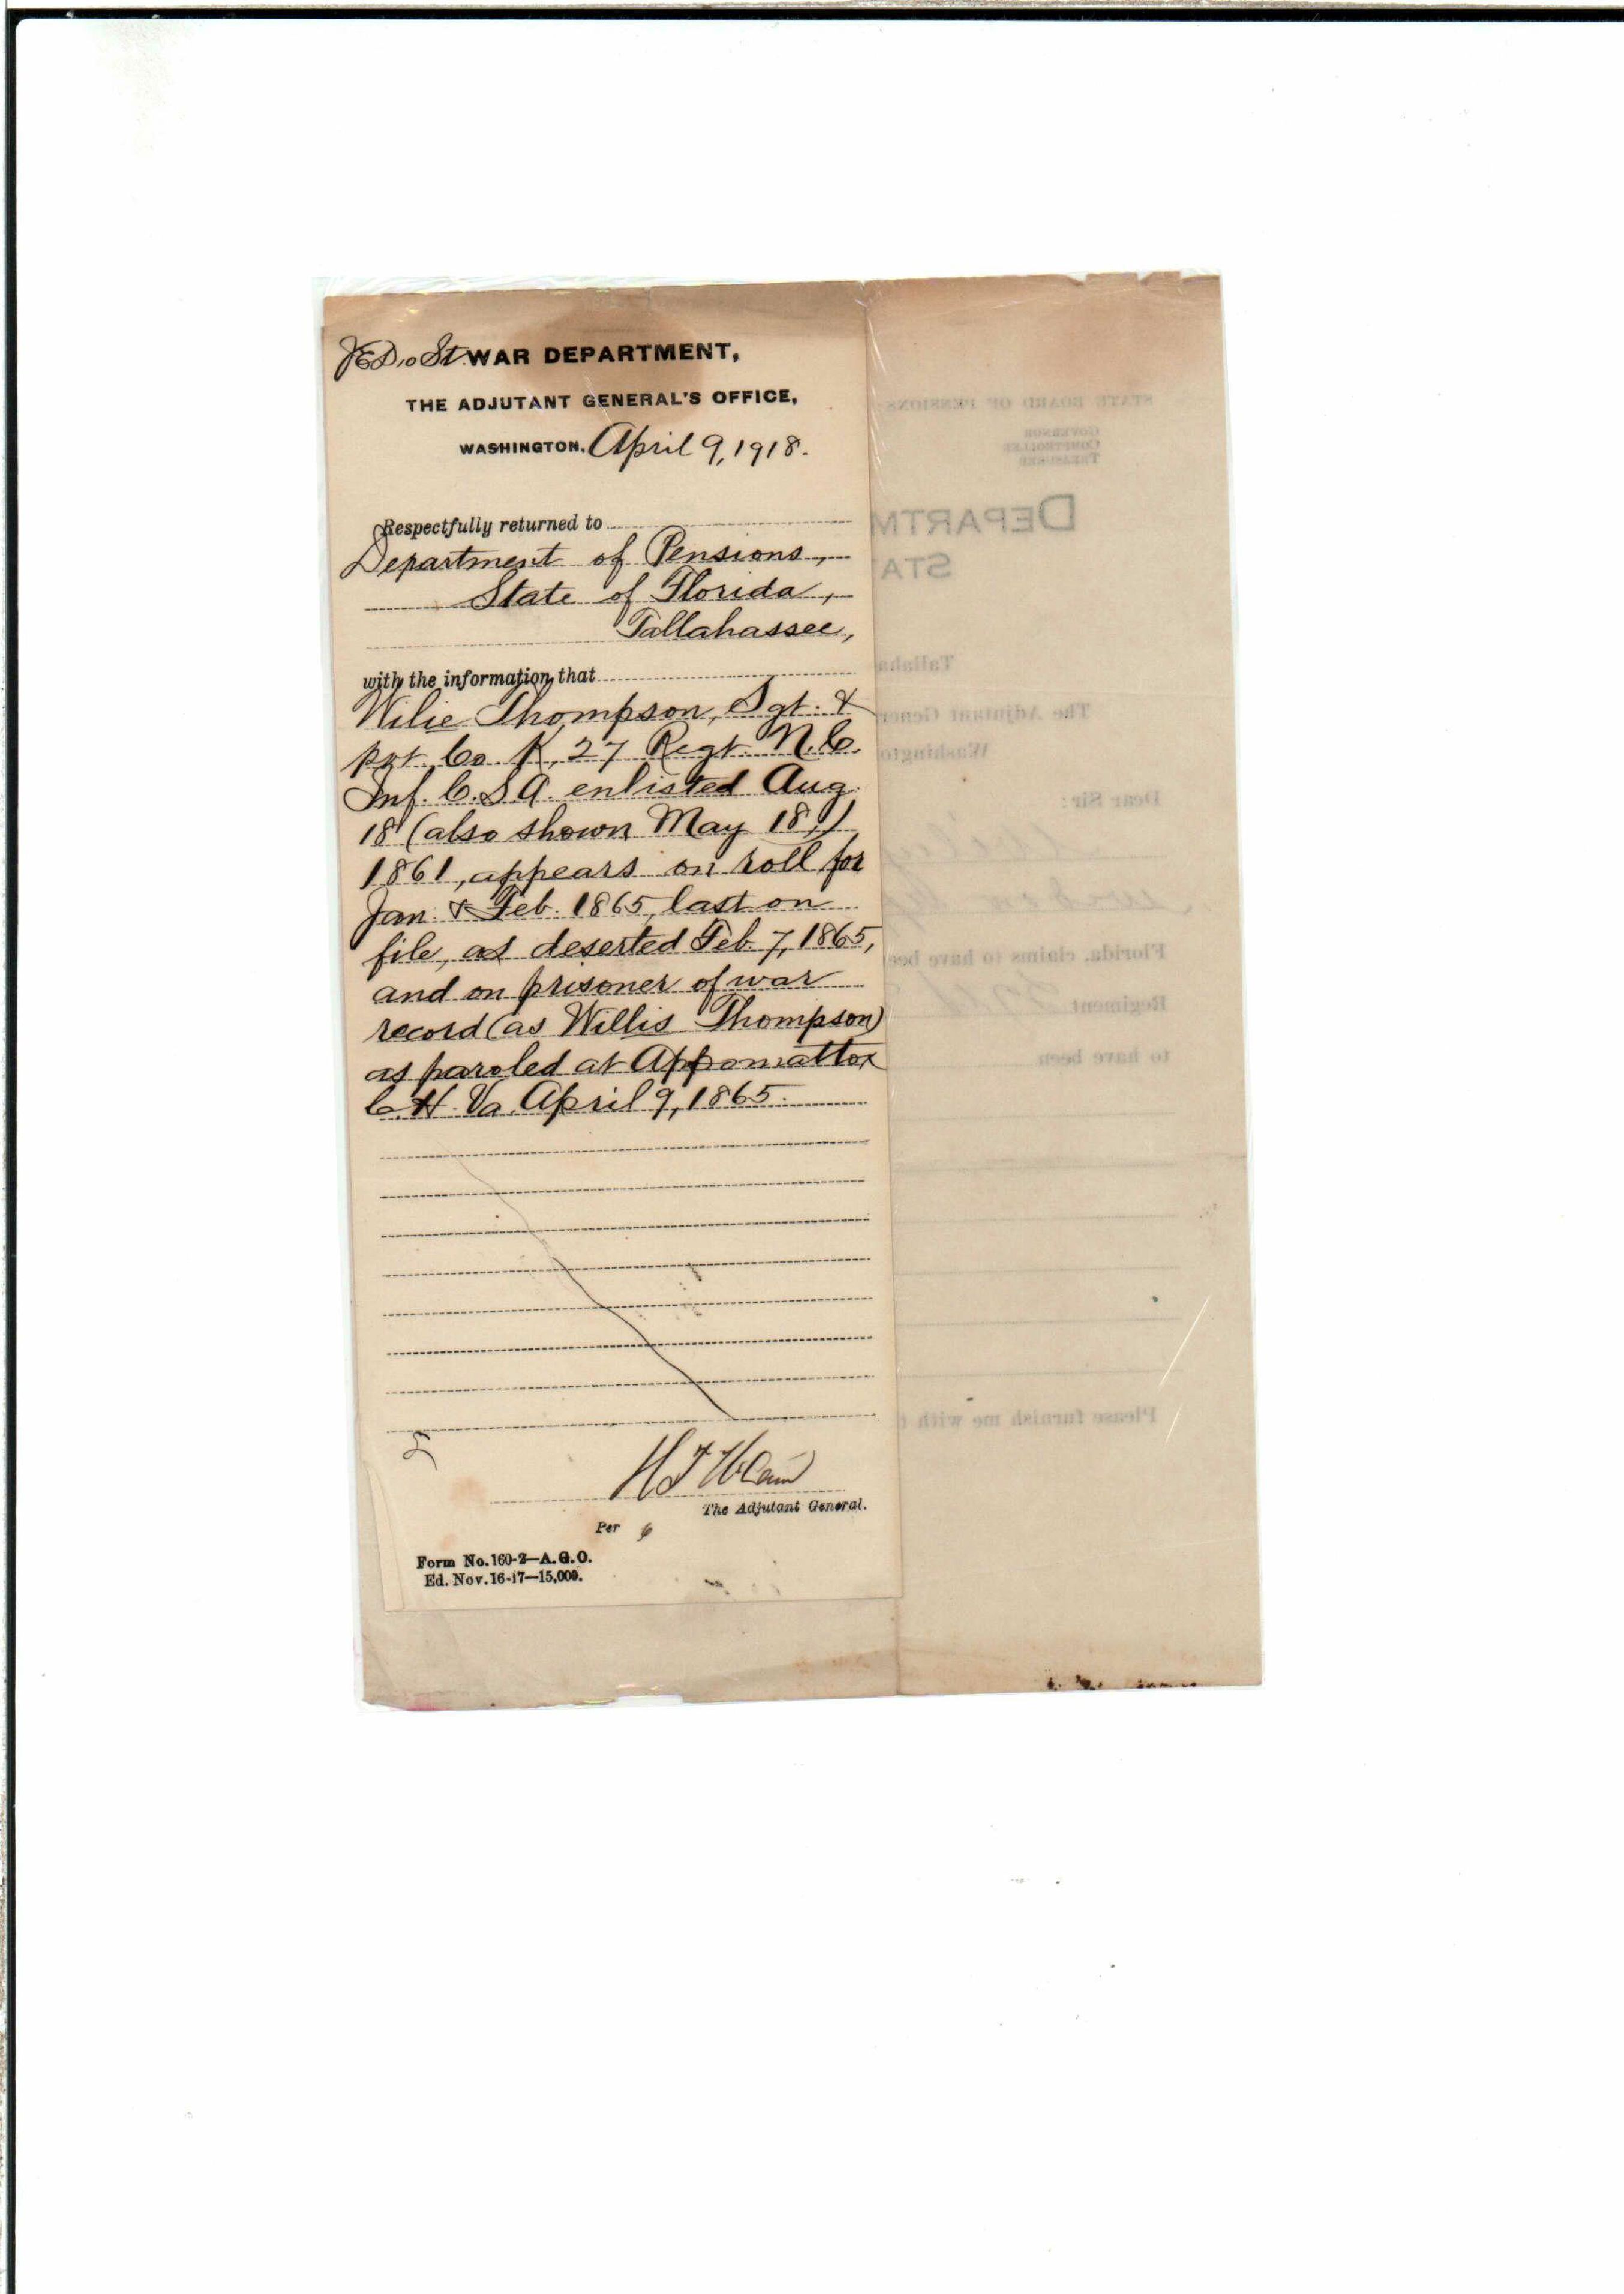 WAR DEPARTMENT,
THE ADJUTANT GENERAL'S OFFICE,
WASHINGTON, April 9, 1918.
Respectfully returned to
Department of Pensions,
State of Florida,
Tallahassee,
with the information that
Wilie Thompson, Sgt. &
pvt. Co. K, 27 Regt. N.C.
Inf. C.S.A. enlisted Aug.
18 (also shown May 18,)
1861, appears on roll for
Jan. & Feb. 1865, last on
file, as deserted Feb. 7, 1865,
and on prisoner of war
record (as Willis Thompson)
as paroled at Appomattox
C.H. Va. April 9, 1865.
The Adjutant General.
Per
Form No. 160-2—A.G.O.
Ed. Nov. 16-17—15,000.
STATE BOARD OF PENSIONS
GOVERNOR
COMPTROLLER
TREASURER
DEPARTM
STA
Tallaha
The Adjutant Gener
Washingto
Dear Sir:
Florida, claims to have bee
Regiment
to have been
Please furnish me with t